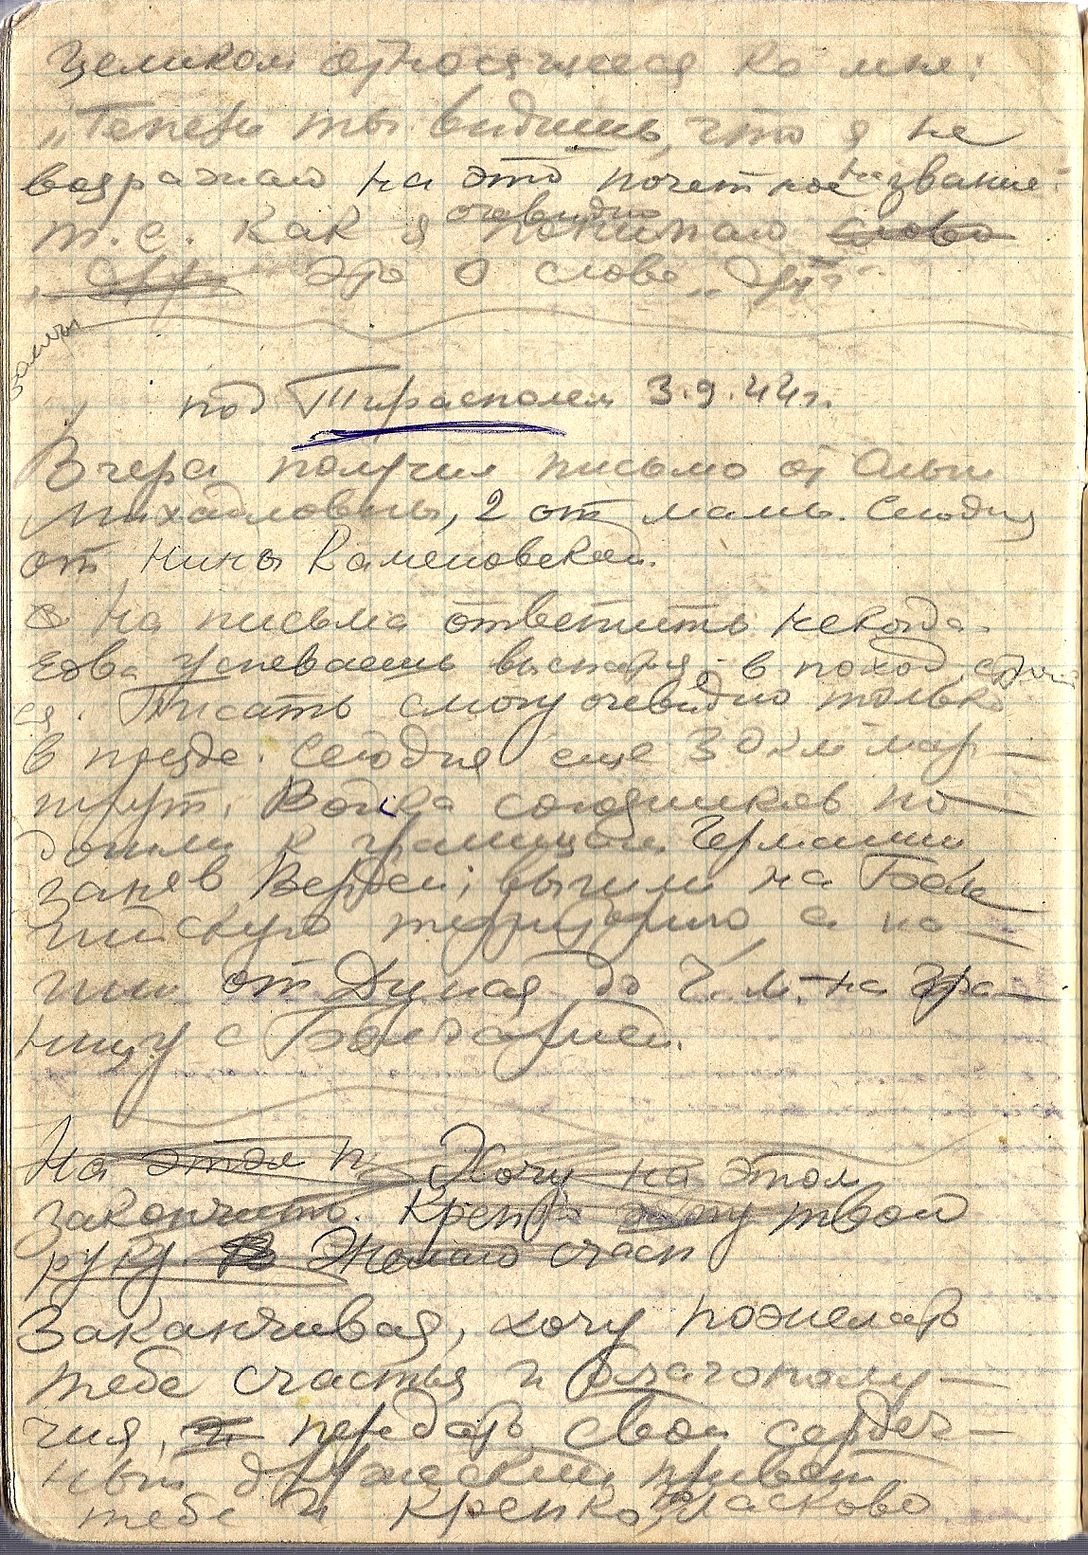 целиком относящееся ко мне:
„Теперь ты видишь, что я не
возражаю на это почетное название:
т.е. как я очевидно понимаю слово
это о слове „друг“
под Тирасполем 3.9.44 г.
Вчера получил письмо от Ольги
Михайловны, 2 от мамы. Сегодня
от Нины Каменовской.
На письма ответить некогда.
Едва успеваешь выспаться, в поход
ся. Писать смогу очевидно только
в поезде. Сегодня еще 30 км мар-
шрут. Войска союзников по-
дошли к границам Германии
заняв Верден; вышли на Бель
гийскую территорию, а на-
ши от Дуная до Ч. м. на гра-
ницу с Болгарией.
На этом п Хочу на этом
закончить. Крепко жму твою
руку. Желаю счаст
Заканчивая, хочу пожелать
тебе счастья и благополу-
чия, и передать свой сердеч-
ный дружеский привет
тебе и крепко, ласково